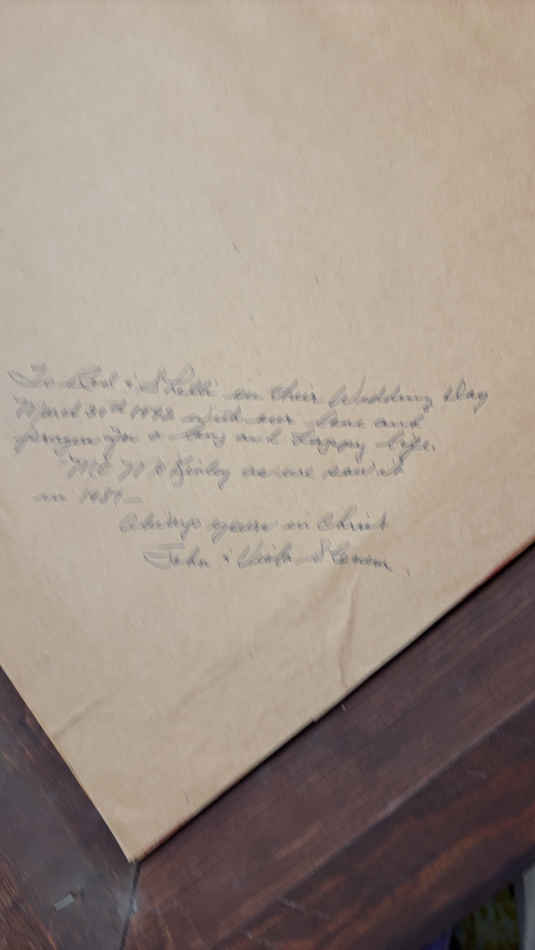 To & Shelli on their Wedding Day
30th with our love and
prayers for a long and happy life.
"Mt. McKinley as we saw it
in 1981 —
Always yours in Christ
John &